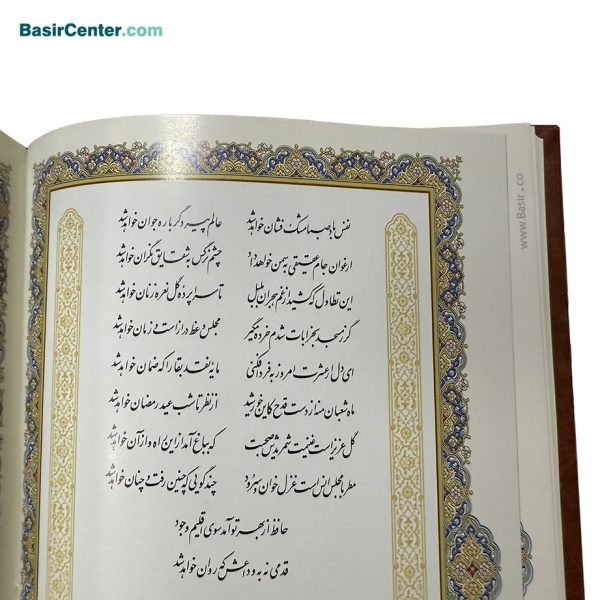 BasirCenter.com
www.Basir.co
نفس باد صبا مشک فشان خواهد شد عالم پیر دگر باره جوان خواهد شد
ارغوان جام عقیقی به سمن خواهد داد چشم نرگس به شقایق نگران خواهد شد
این تطاول که کشید از غم هجران بلبل تا سراپرده گل نعره زنان خواهد شد
گر ز مسجد به خرابات شدم خرده مگیر مجلس وعظ دراز است و زمان خواهد شد
ای دل ار عشرت امروز به فردا فکنی مایه نقد بقا را که ضمان خواهد شد
ماه شعبان منه از دست قدح کاین خورشید از نظر تا شب عید رمضان خواهد شد
گل عزیز است غنیمت شمریدش صحبت که به باغ آمد از این راه و از آن خواهد شد
مطربا مجلس انس است غزل خوان و سرود چند گویی که چنین رفت و چنان خواهد شد
حافظ از بهر تو آمد سوی اقلیم وجود
قدمی نه به وداعش که روان خواهد شد